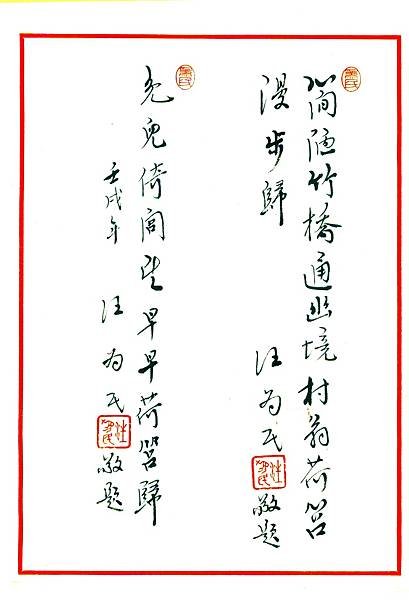 簡陋竹橋通幽境村翁荷笤
漫步歸
汪為民敬題
免兒倚閭望早早荷笤歸
壬戌年
汪為民敬題